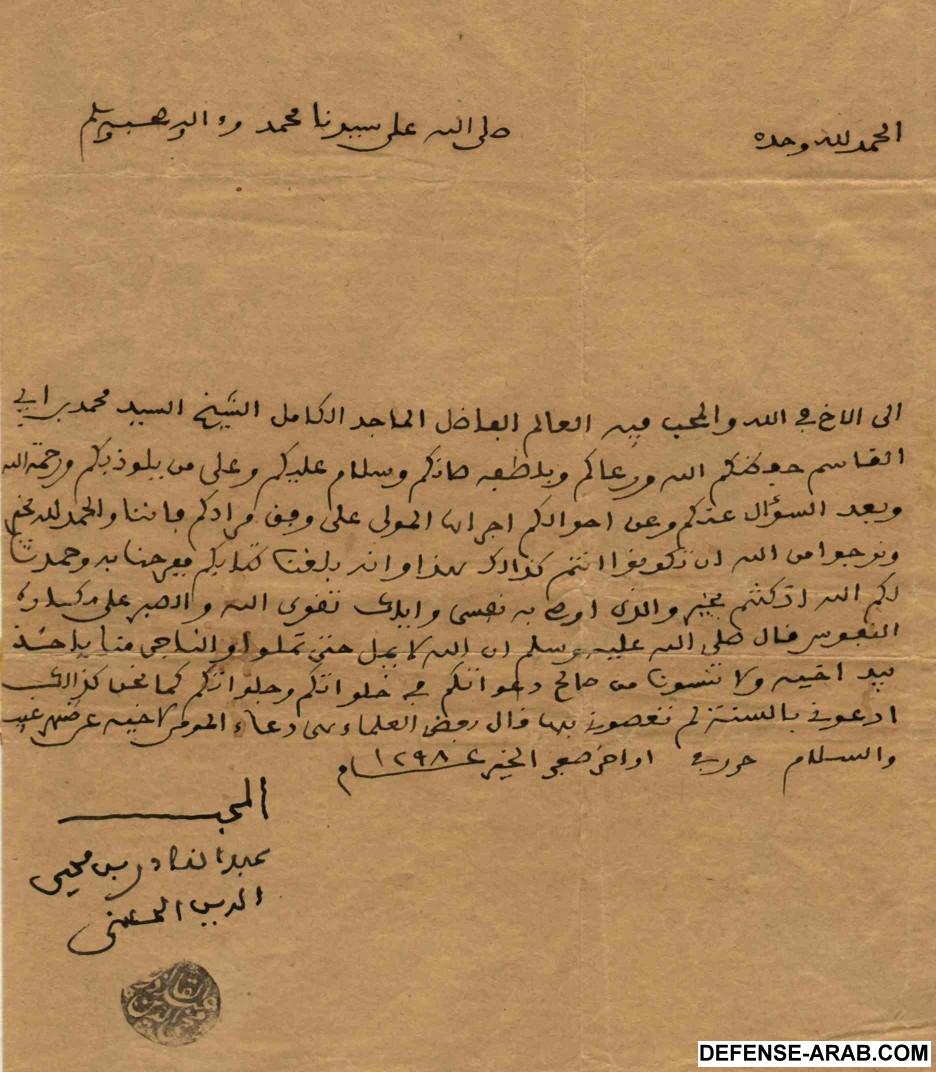 الحمد لله وحده
صلى الله على سيدنا محمد وءاله وصحبه وسلم
الى الاخ في الله والمحب فيه العالم الفاضل الماجد الكامل الشيخ السيد محمد بن ابي
القاسم حفظكم الله ورعاكم وبلطفه صانكم وسلام عليكم وعلى من يلوذ بكم ورحمة الله
وبعد السؤال عنكم وعن احوالكم اجراها المولى على وفق مرادكم فاننا والحمد لله بخير
ونرجوا من الله ان تكونوا انتم كذالك هذا وانه بلغنا كتابكم ففرحنا به وحمدنا
لكم الله اذ كنتم بخير والذي اوصي به نفسي واياك تقوى الله والصبر على مكساره
النفوس قال صلى الله عليه وسلم ان الله لا يمل حتى تملوا والناجي منا ياخذ
بيد اخيه ولا تنسونا من صالح دعواتكم في خلواتكم وجلواتكم كما نحن كذالك
ادعوني بالسنة لم تعصوني بها قال بعض العلماء هي دعاء المومن لاخيه عن ظهر غيب
والسلام حرر في اواخر صفر الخير عام ١٢٩٨
المحب
عبد القادر بن محيي
الدين الحسني
DEFENSE-ARAB.COM